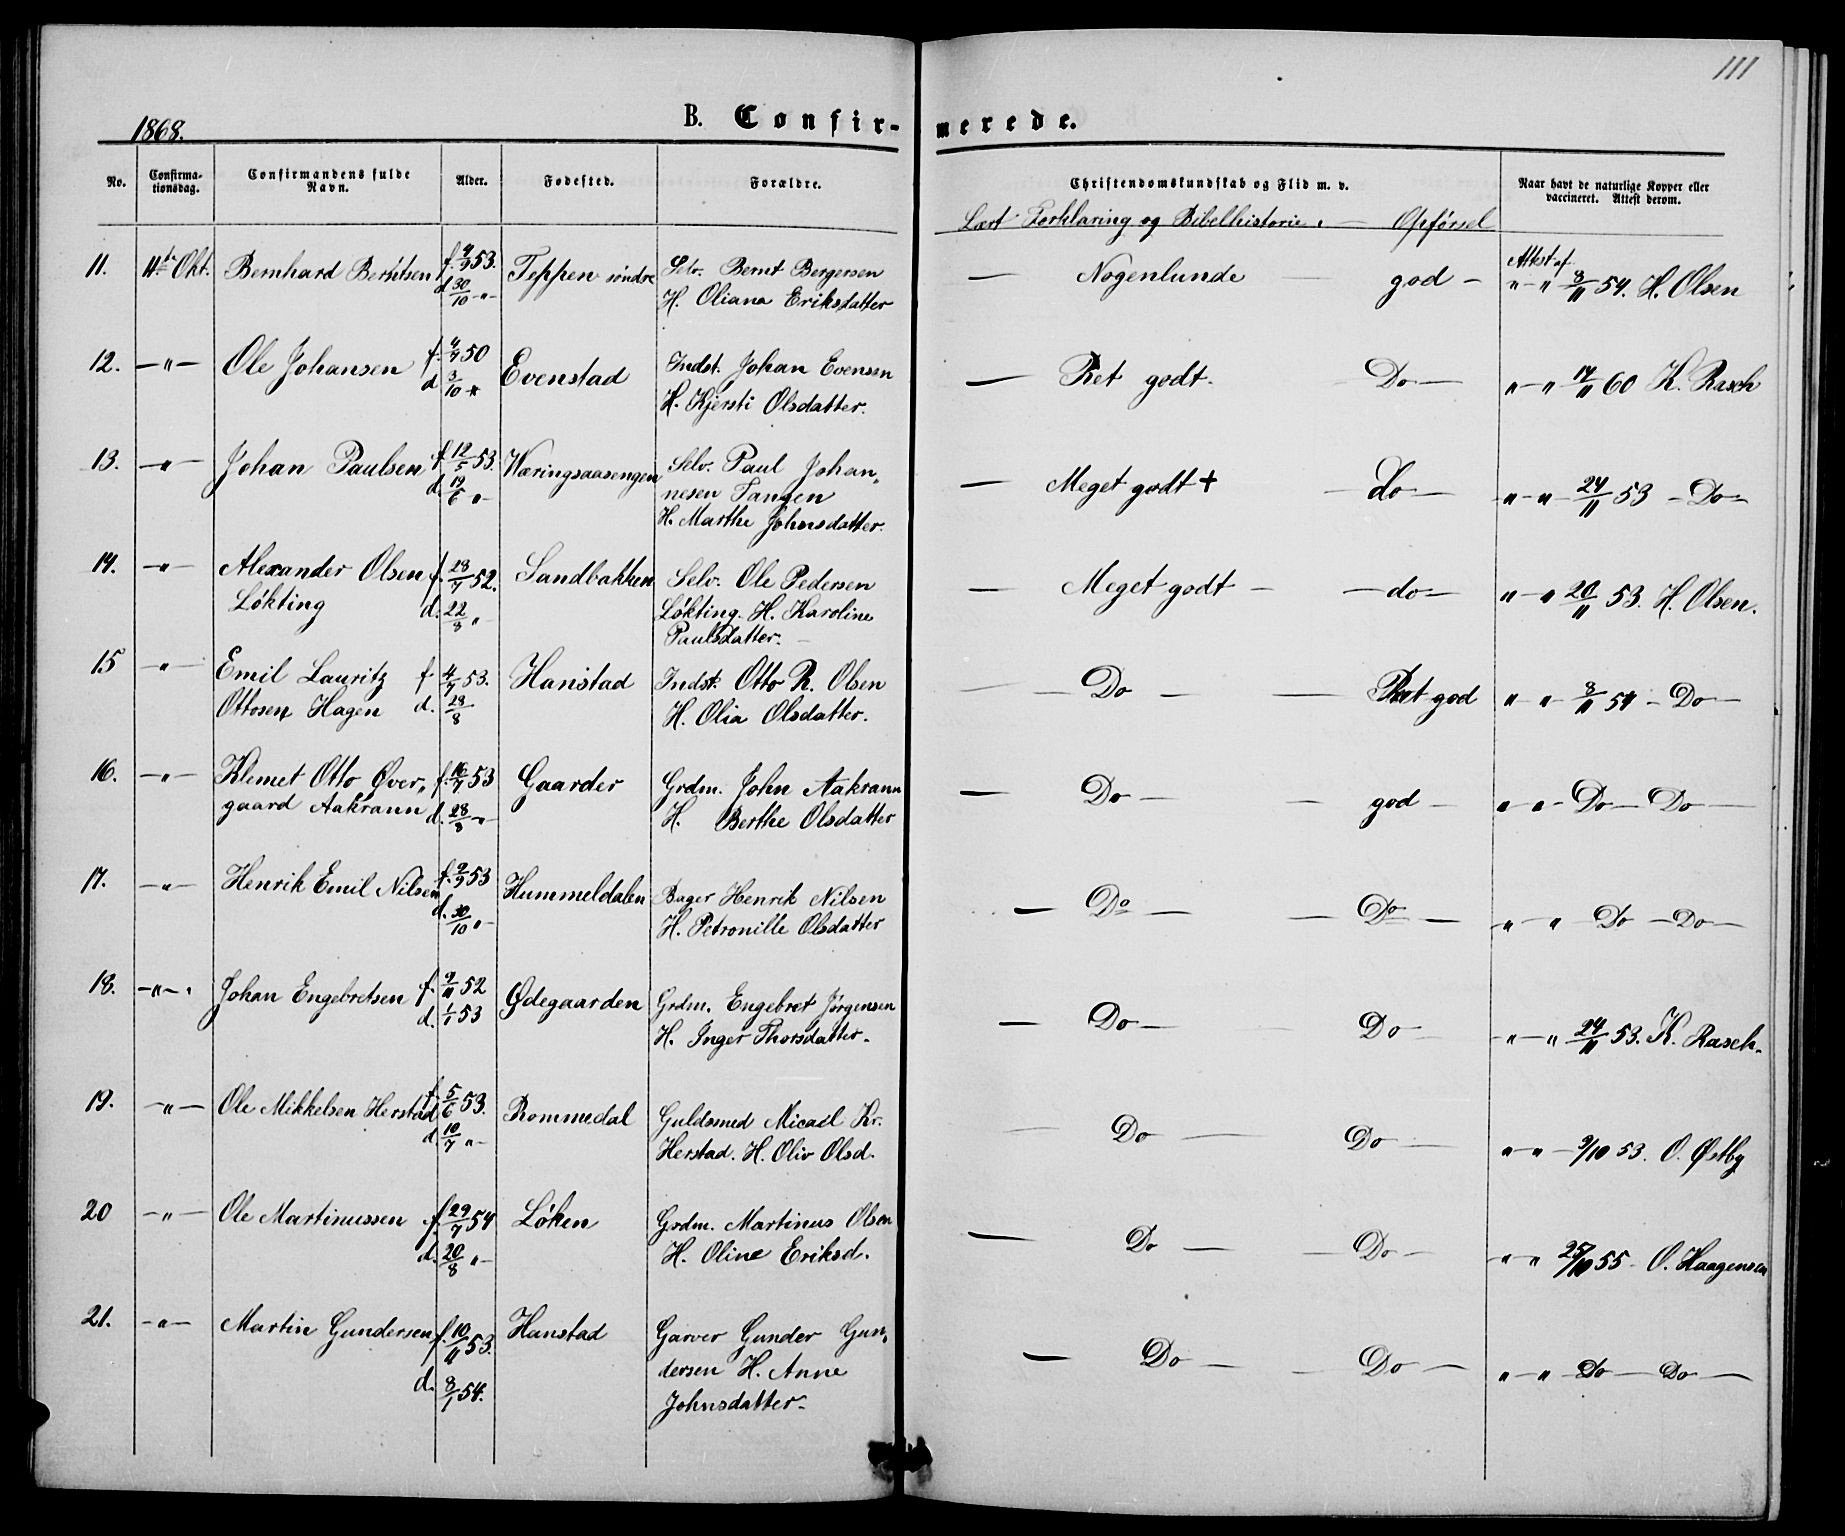 111
1868.
B. Confir- merede.
No. Confirma-tionsdag. Confirmandens fulde Navn. Alder. Fødested. Forældre. Christendomskundskab og Flid m. v. Naar havt de naturlige Kopper eller vaccineret. Attest derom.
Lært Forklaring og Bibelhistorie. — Opførsel
11. 11te Okt. Bernhard Berntsen f. 9/9 53. Teppen søndre Selv. Bernt Bergersen — Nogenlunde — god — Attest af
d 30/10 -"- H. Oliana Eriksdatter "-" 8/11 54. H. Olsen
12. —"— Ole Johansen f. 4/4 50 Evenstad Indst. Johan Evensen — Ret godt. — Do — "-" 14/11 60 K. Rasch
d 3/10 H. Kjersti Olsdatter.
13. —"— Johan Paulsen f. 12/5 53. Væringsaasengen Selv. Paul Johan„ — Meget godt + — do — "-"- 24/11 53 — Do —
d. 19/6 "- nesen Tangen
H. Marthe Johnsdatter.
14. —"— Alexander Olsen f. 28/7 52. Sandbakken Selv. Ole Pedersen — Meget godt — — do — "-" 20/11 53. H. Olsen.
Løkting d. 22/8 "- Løkting. H. Karoline
Paulsdatter. —
15 —"— Emil Lauritz f 4/7 53. Hanstad Indst. Otto R. Olsen — Do — — Ret god "-"- 8/11 54 — Do —
Ottosen Hagen d. 28/8 H. Olia Olsdatter.
16. —"— Klemet Otto Øver„ f. 16/7 53 Gaarder Grdm. John Aakrann — Do — — god — "-"- Do — Do —
gaard Aakrann d. 28/8 -"- H. Berthe Olsdatter
17. —"— Henrik Emil Nilsen f. 9/9 53 Hummeldalen Bager Henrik Nilsen — Do — — Do — -"-" Do — Do —
d. 30/10 "- H. Petronille Olsdatter
18. —"— Johan Engebretsen f. 9/11 52 Ødegaarden Grdm. Engebret Jørgensen — Do — Do — -"-" 24/11 53. K. Rasch.
d. 1/1 53 H. Inger Thorsdatter.
19. —"— Ole Mikkelsen Herstad f. 5/6 53. Rommedal Guldsmed Micael Kr. — Do — Do — "-"- 9/10 53. O. Østby
d. 10/7 "- Herstad. H. Oliv Olsd.
20 —"— Ole Martinussen f. 29/7 54 Løken Grdm. Martinus Olsen — Do — — Do — "-" 25/10 55 — O. Haagensen
d. 20/8 "- H. Oline Eriksd.
21. —"— Martin Gundersen f. 10/11 53. Hanstad Garver Gunder Gun„ — Do — — Do — "-"- Do — Do —
d. 8/1 54. dersen H. Anne
Johnsdatter.